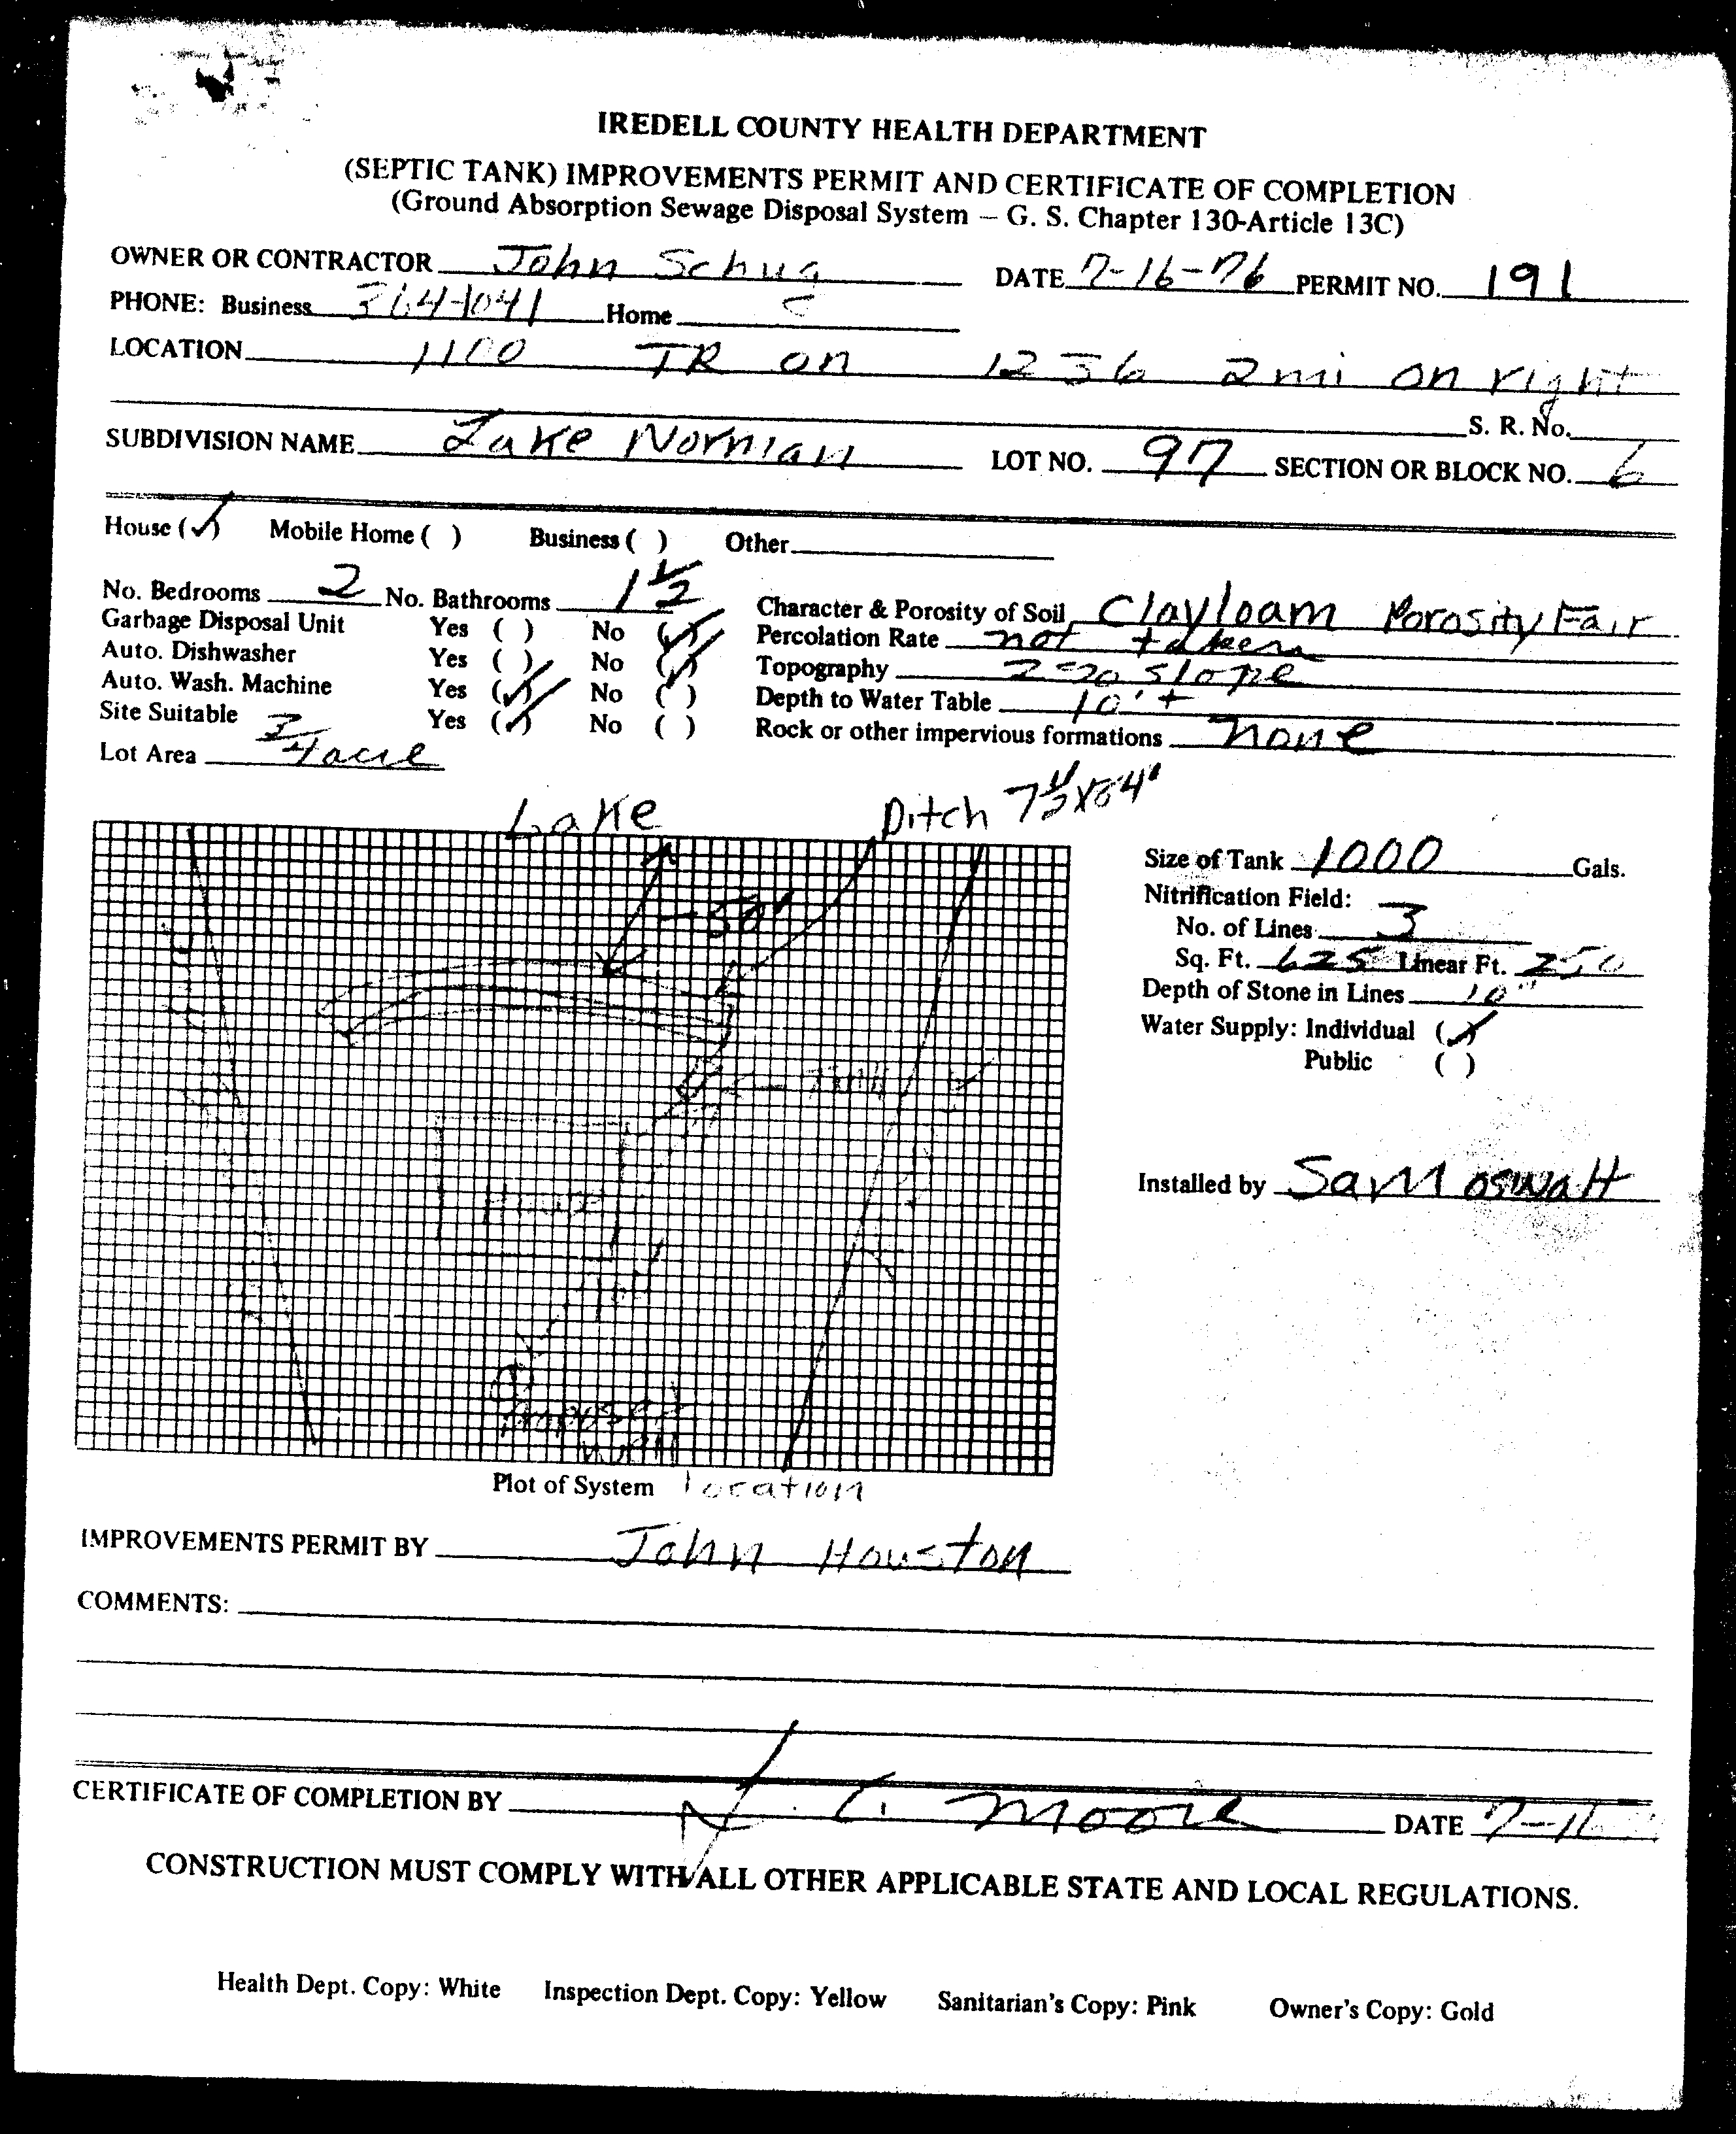 IREDELL COUNTY HEALTH DEPARTMENT
(SEPTIC TANK) IMPROVEMENTS PERMIT AND CERTIFICATE OF COMPLETION
(Ground Absorption Sewage Disposal System – G. S. Chapter 130-Article 13C)
OWNER OR CONTRACTOR John Schug DATE 7-16-76 PERMIT NO. 191
PHONE: Business 364-1041 Home
LOCATION 1100 TR on 1236 2 mi on right
S. R. No.
SUBDIVISION NAME Lake Norman LOT NO. 97 SECTION OR BLOCK NO. 6
House (✓) Mobile Home ( ) Business ( ) Other
No. Bedrooms 2 No. Bathrooms 1 1/2 Character & Porosity of Soil Clayloam Porosity Fair
Garbage Disposal Unit Yes ( ) No (✓) Percolation Rate not taken
Auto. Dishwasher Yes ( ) No (✓) Topography slope
Auto. Wash. Machine Yes (✓) No ( ) Depth to Water Table 10' +
Site Suitable Yes (✓) No ( ) Rock or other impervious formations none
Lot Area 3/4 acre
Lake Ditch 7 1/2 x 84"
50'
Tank
House
Proposed
well
location
Size of Tank 1000 Gals.
Nitrification Field:
No. of Lines 3
Sq. Ft. 625 Linear Ft. 250
Depth of Stone in Lines 10"
Water Supply: Individual (✓)
Public ( )
Installed by Sam Oswalt
Plot of System
IMPROVEMENTS PERMIT BY John Houston
COMMENTS:
CERTIFICATE OF COMPLETION BY Moore DATE
CONSTRUCTION MUST COMPLY WITH ALL OTHER APPLICABLE STATE AND LOCAL REGULATIONS.
Health Dept. Copy: White Inspection Dept. Copy: Yellow Sanitarian's Copy: Pink Owner's Copy: Gold